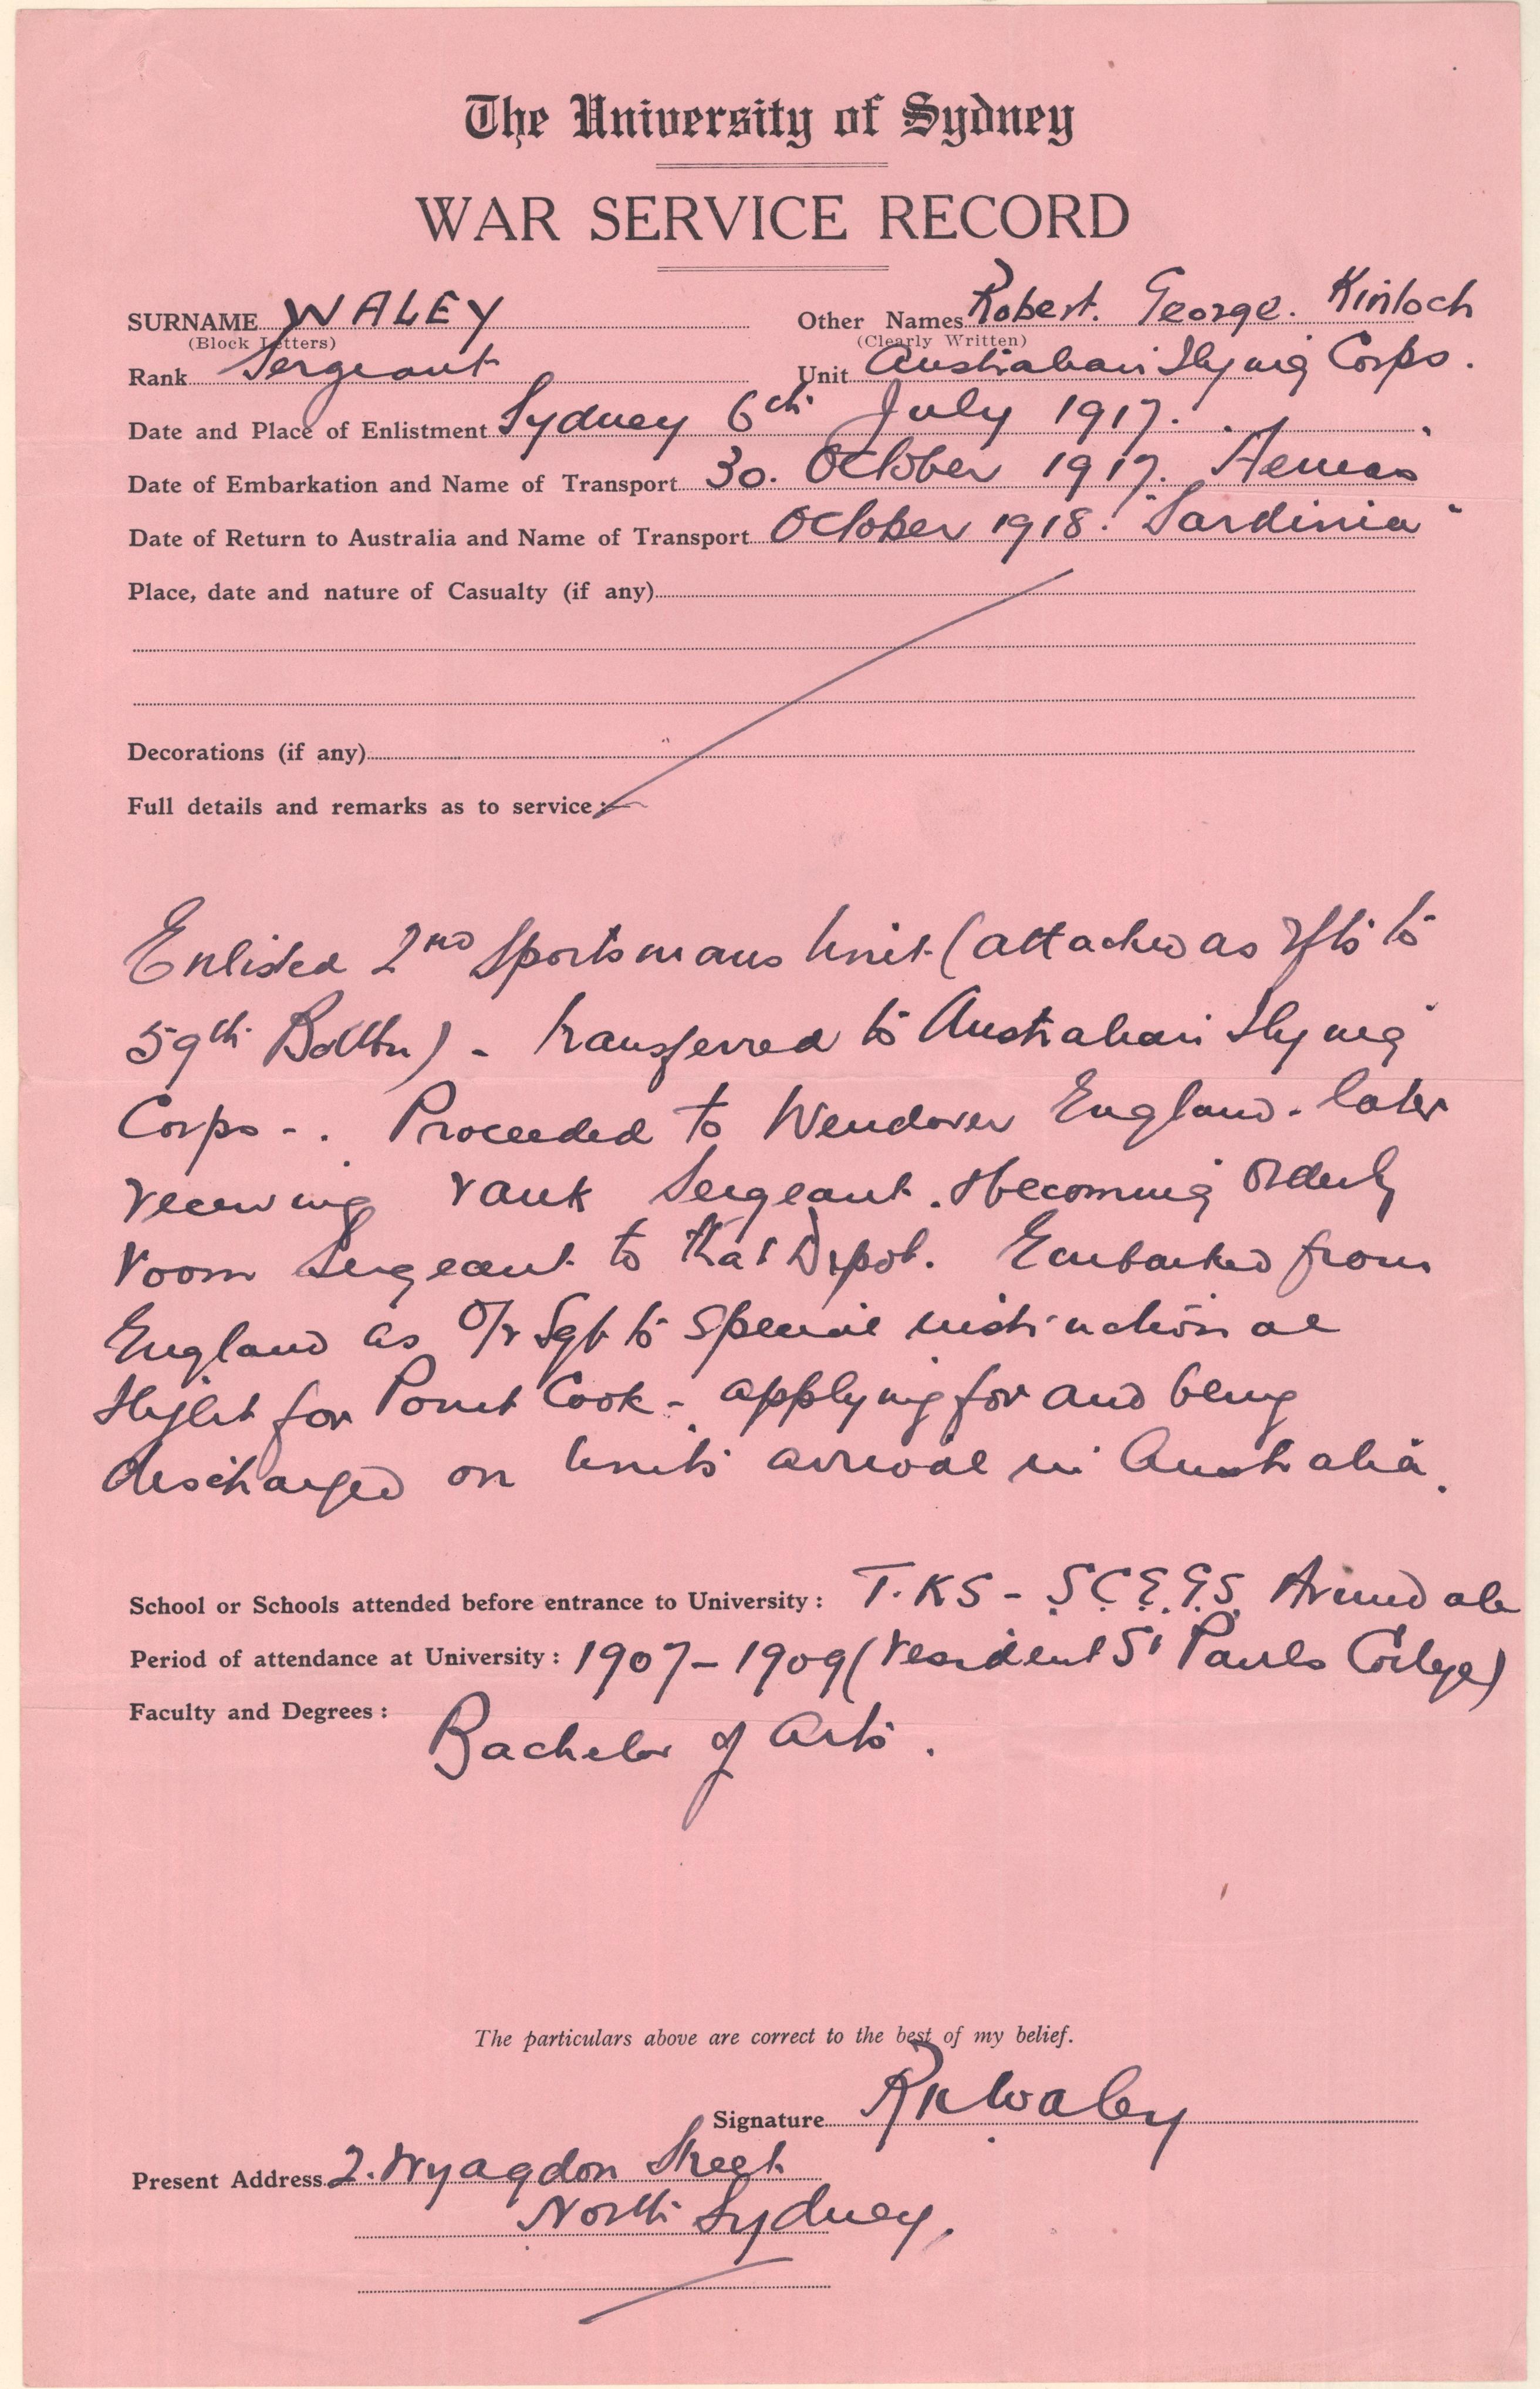 The University of Sydney
WAR SERVICE RECORD
SURNAME WALEY Other Names Robert. George. Kinloch
(Block Letters) (Clearly Written)
Rank Sergeant Unit Australian Flying Corps.
Date and Place of Enlistment Sydney 6th July 1917.
Date of Embarkation and Name of Transport 30. October 1917.
Date of Return to Australia and Name of Transport October 1918. "Sardinia"
Place, date and nature of Casualty (if any)
Decorations (if any)
Full details and remarks as to service:—
Enlisted 2nd Sportsmans Unit (attached as rfts to
59th Battn) - transferred to Australian Flying
Corps -. Proceeded to Wendover England - later
receiving rank Sergeant. & becoming Orderly
room Sergeant to that Depot. Embarked from
England as O/r Sgt to special instructional
flight for Point Cook - applying for and being
discharged on units arrival in Australia.
School or Schools attended before entrance to University: T.KS - S.C.E.G.S.
Period of attendance at University: 1907 - 1909 (resident St Pauls College)
Faculty and Degrees:
Bachelor of Arts.
The particulars above are correct to the best of my belief.
Signature RKWaley
Present Address 2. Wyagdon Street
North Sydney.